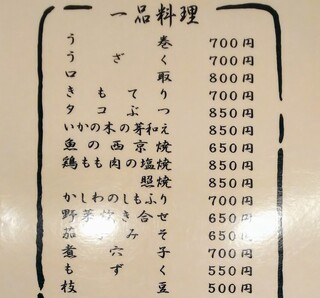 一品料理
うまき 巻 700円
うざく 700円
口取 800円
きもてり 700円
タコぶつ 850円
いかの木の芽和え 850円
魚の西京焼 650円
鶏もも肉の塩焼 850円
照焼 850円
かしわのしもふり 650円
野菜炊き合せ 650円
茄子みそ 650円
煮穴子 700円
もずく 550円
枝豆 500円